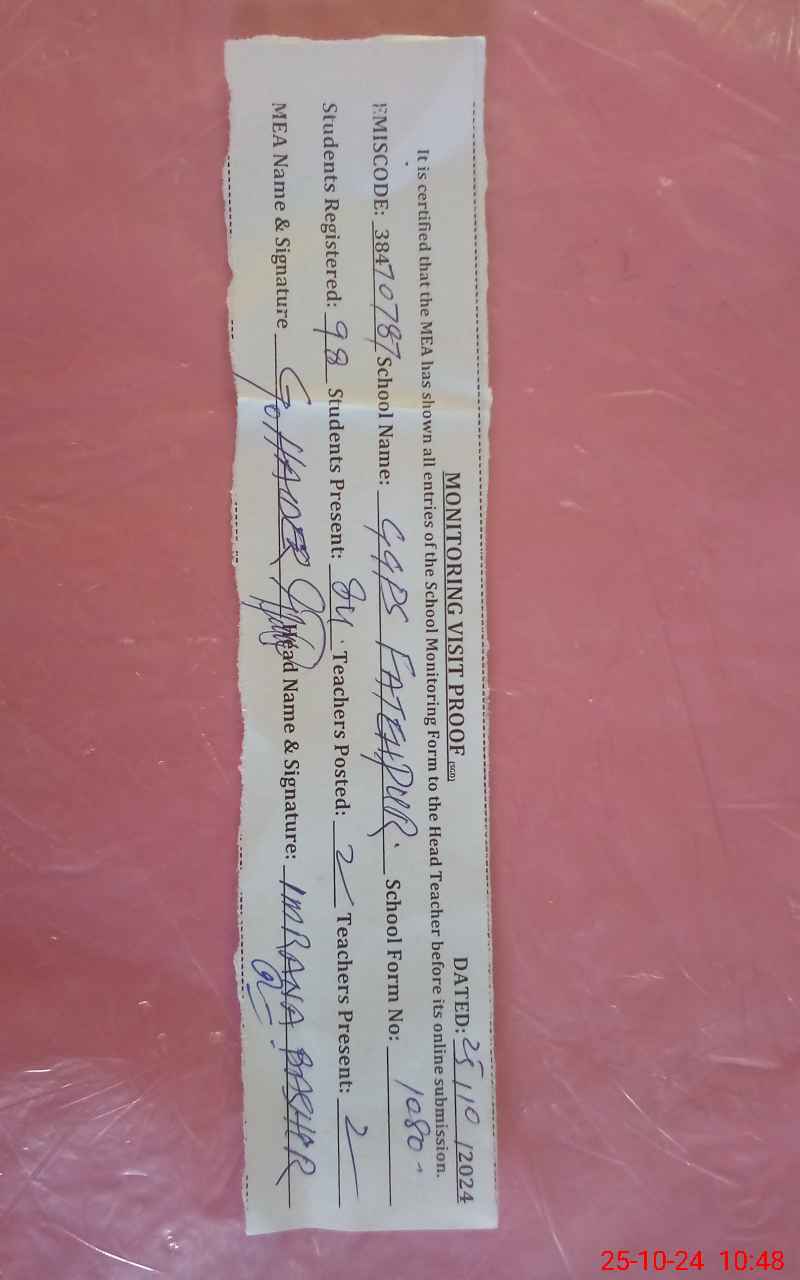 MONITORING VISIT PROOF (SGD) DATED: 25/10/2024
It is certified that the MEA has shown all entries of the School Monitoring Form to the Head Teacher before its online submission.
EMISCODE: 38470787 School Name: GGPS FATEHPUR. School Form No: 1080
Students Registered: 98 Students Present: 84 Teachers Posted: 2 Teachers Present: 2
MEA Name & Signature G. HAIDER Head Name & Signature: IMRANA BASHIR
25-10-24 10:48